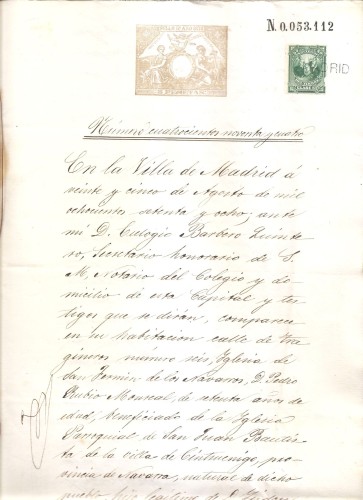 N. 0.053.112
DRID
Número cuatrocientos noventa y cuatro
En la Villa de Madrid á
veinte y cinco de Agosto de mil
ochocientos setenta y ocho, ante
mi D. Eulogio Barbero Quinte
ro, Secretario honorario de S.
M. Notario del Colegio y do-
micilio de esta Capital y tes-
tigos que se dirán, comparece
en su habitacion calle de
número seis, Iglesia de
San Fermin de los Navarros, D. Pedro
Rubio Monreal, de setenta años de
edad, beneficiado de la Iglesia
Parroquial de San Juan Bautis
ta de la villa de Cintruenigo, pro-
vincia de Navarra, natural de dicho
pueblo, hijo legitimo de D.